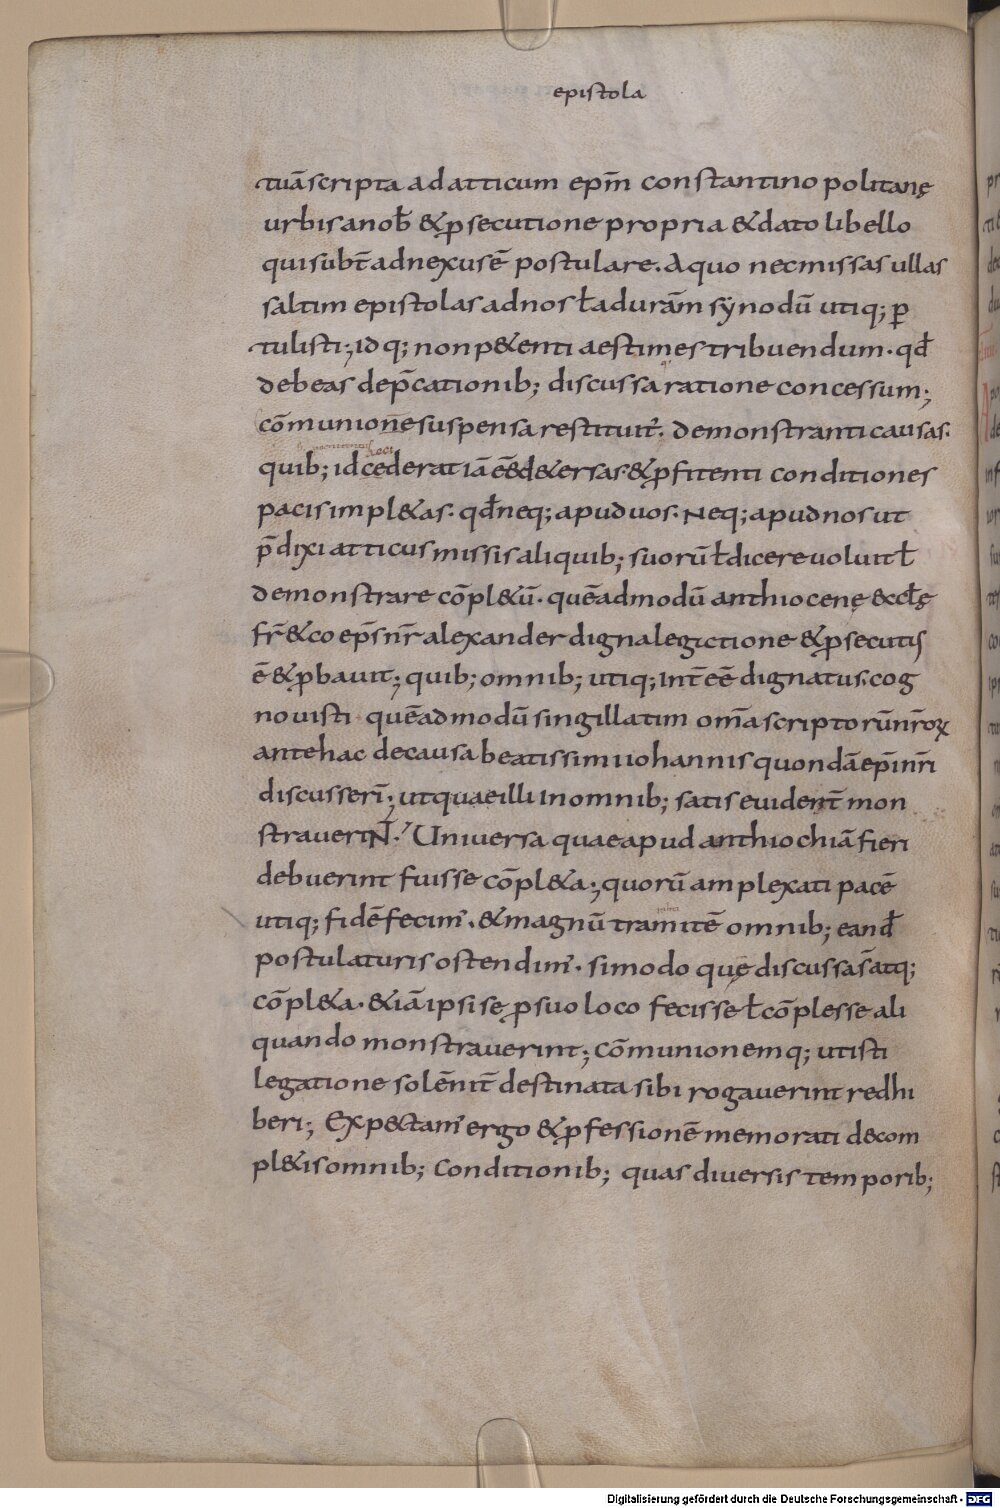 epistola
tuā scripta ad atticum ep̄m constantino politanę
urbis a nob̄ & ꝓsecutione propria & dato libello
qui subt̄ adnexus ē postulare. A quo nec missas ullas
saltim epistolas ad nos ł ad ur̄am synodū utiq; ꝑ
tulisti; id q; non p&enti aestimes tribuendum. qđ
debeas dep̄cationib; discussa ratione concessum;
cōmunione suspensa restituit᷑. demonstranti causas.
quib; id cederat iā ēē d&ersas. & ꝓfitenti conditiones
pacis impl&as. qđ neq; apud uos. Neq; apud nos ut
p̄dixi atticus missis aliquib; suorū ł dicere uoluit ł
demonstrare cōpl&ū. quēadmodū anthiocenę eccłę
fr̄ & coep̄s nr̄ alexander digna legictione & ꝓsecutis
ē & ꝓbauit; quib; omnib; utiq; int̄ēē dignatus. cog
nouisti quēadmodū singillatim om̄a scripto rū nr̄oꝝ
antehac de causa beatissimi iohannis quondā ep̄i nr̄i
discusserī; ut quae illi in omnib; satis euident̄ mon
straverīN̄. Universa quae apud anthiochiā fieri
debuerint fuisse cōpl&a; quorū amplexati pacē
utiq; fidē fecim᷒. & magnū tramitē omnib; eanđ
postulaturis ostendim᷒. si modo quę discussa s̄ atq;
cōpl&a. & iā ipsi se ꝓ suo loco fecisse ł cōplesse ali
quando monstraverint; cōmunionemq; ut isti
legatione solēnit̄ destinata sibi rogaverint redhi
beri; Exp&ctam᷒ ergo & ꝓfessionē memorati de com
pl&is omnib; Conditionib; quas diversis temporib;
Digitalisierung gefördert durch die Deutsche Forschungsgemeinschaft - DFG